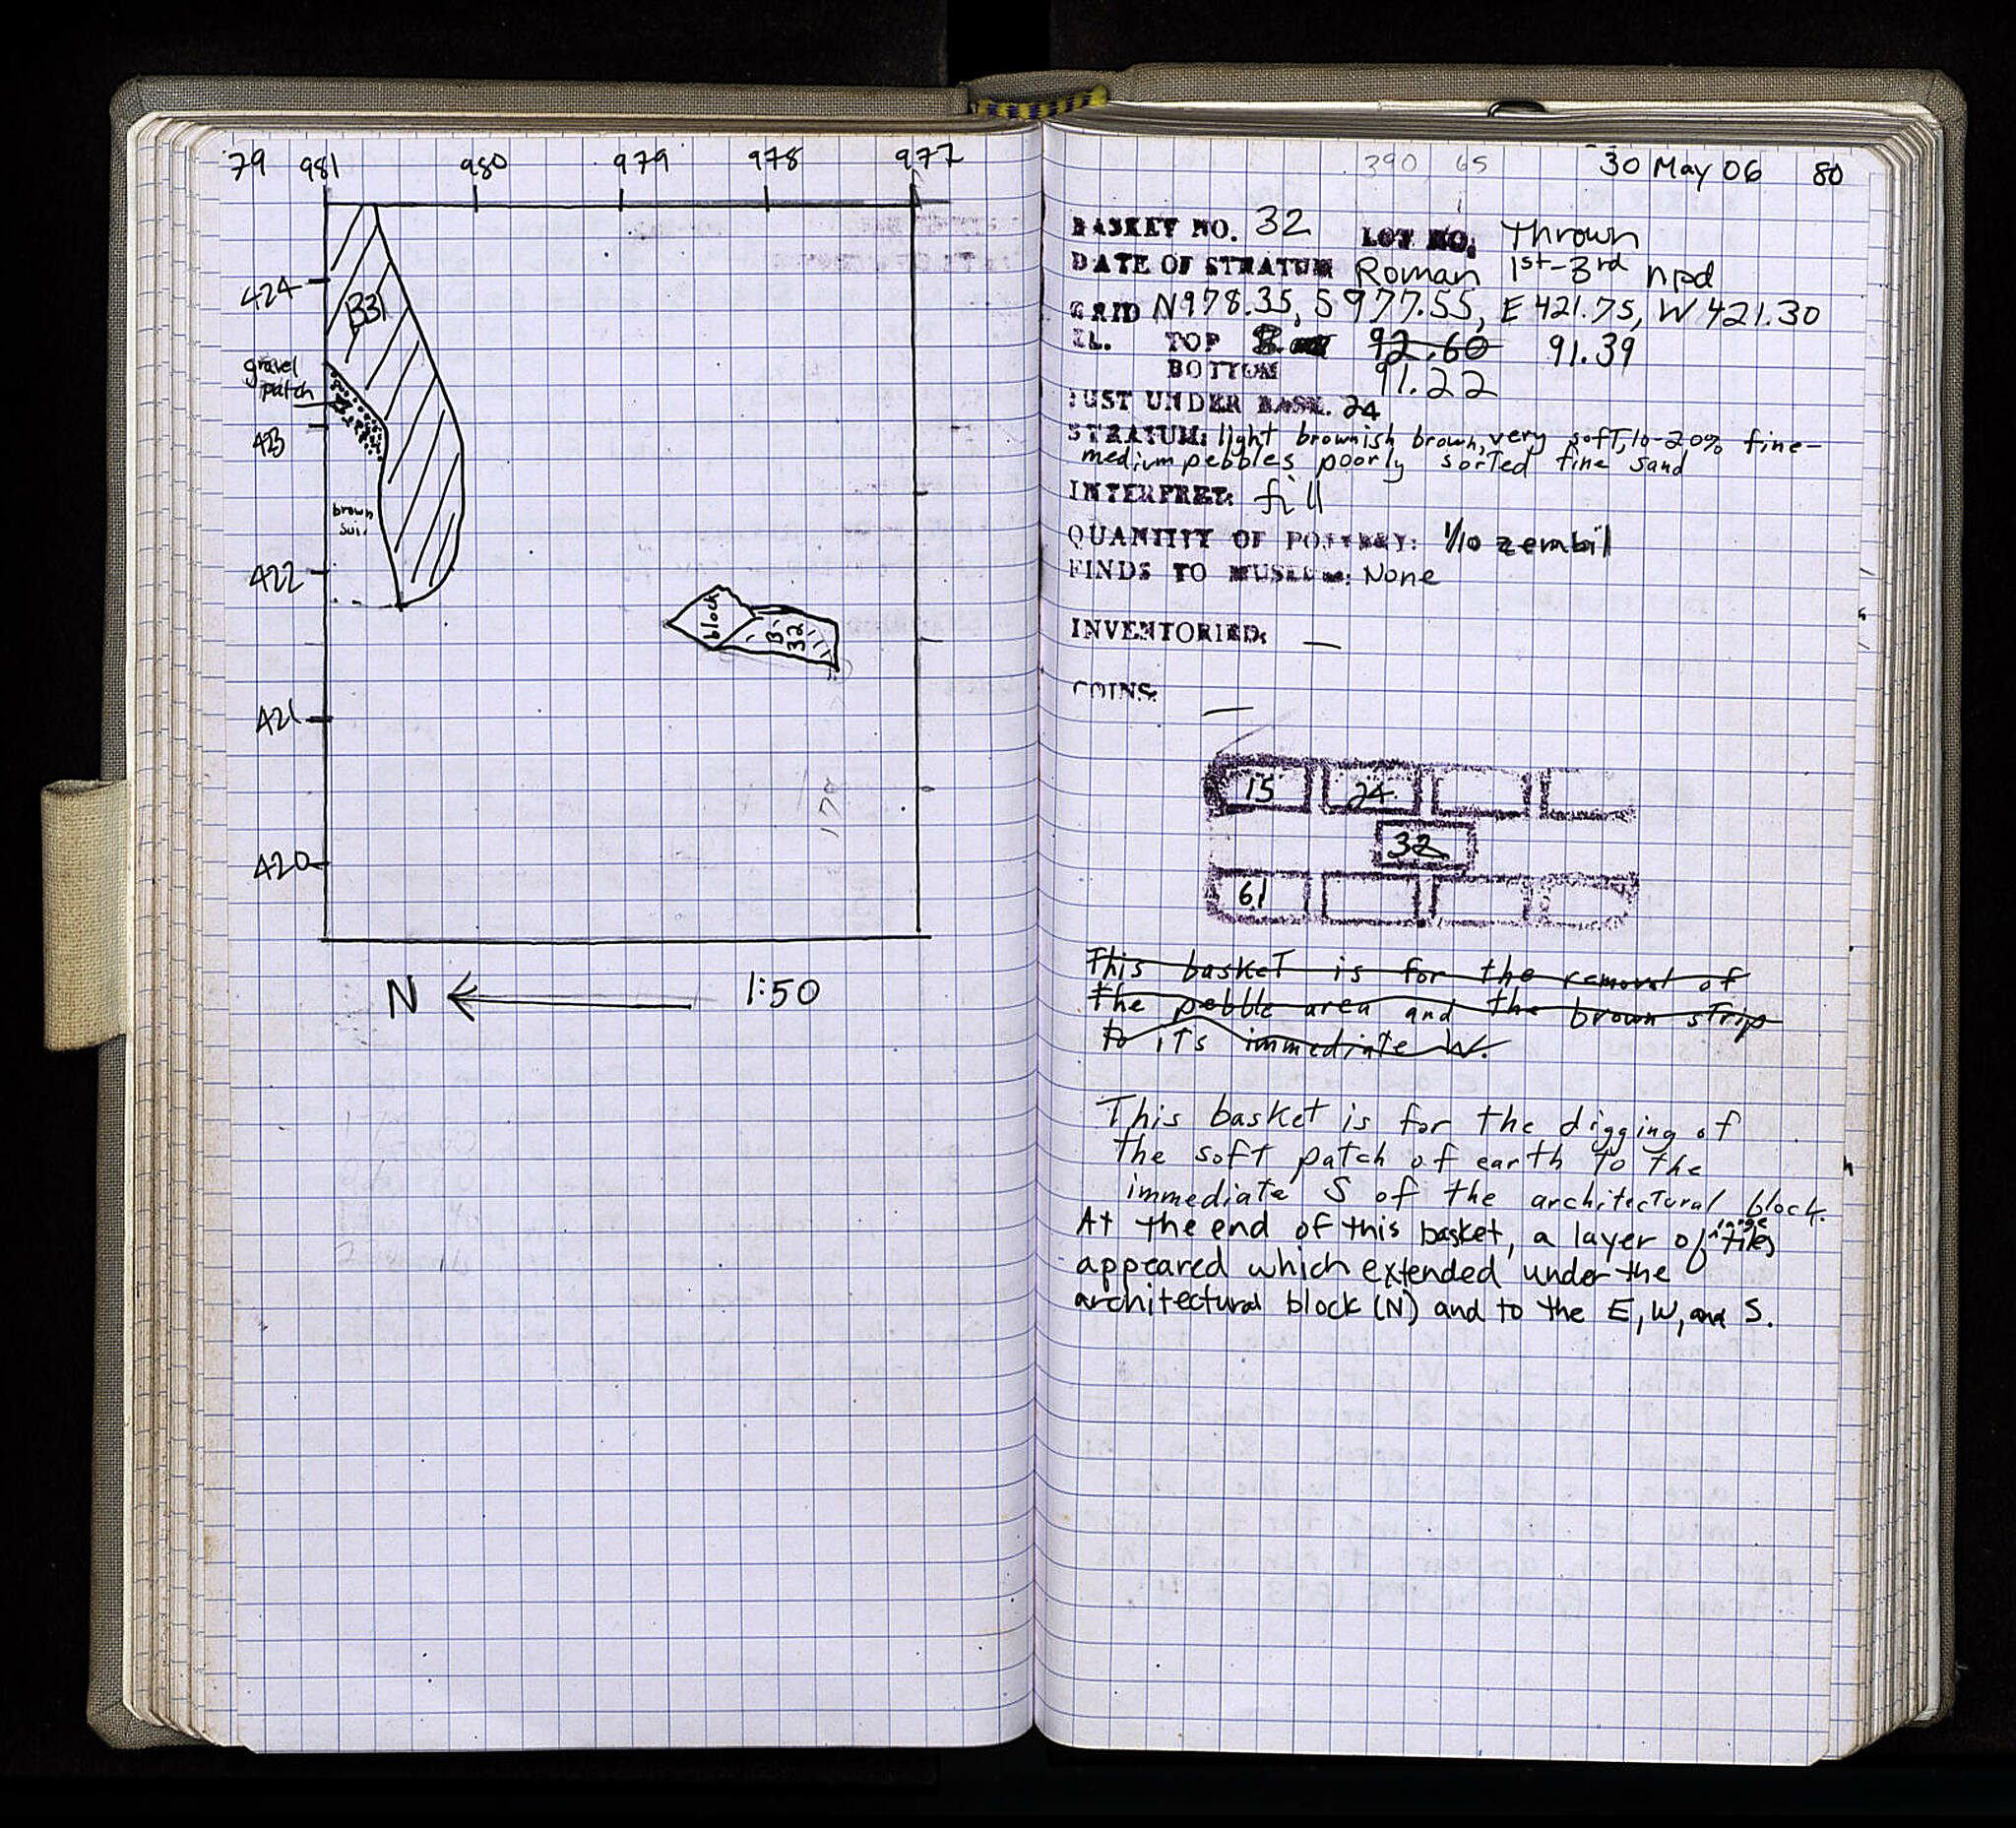 79 981 980 979 978 977
424
B31
gravel
patch
423
brown
soil
422
block
B
32
421
420
N 1:50
390 65 30 May 06 80
BASKET NO. 32 LOT NO. Thrown
DATE OF STRATUM Roman 1st-3rd npd
GRID N978.35, S977.55, E421.75, W421.30
EL. TOP 92.60 91.39
BOTTOM 91.22
JUST UNDER BASK. 24
STRATUM: light brownish brown, very soft, 10-20% fine-
medium pebbles poorly sorted fine sand
INTERPRET: fill
QUANTITY OF POTTERY: 1/10 zembil
FINDS TO MUSEUM: None
INVENTORIED: —
COINS: —
15 24
32
61
This basket is for the removal of
the pebble area and the brown strip
to its immediate W.
This basket is for the digging of
the soft patch of earth to the
immediate S of the architectural block.
At the end of this basket, a layer of large tiles
appeared which extended under the
architectural block (N) and to the E, W, and S.